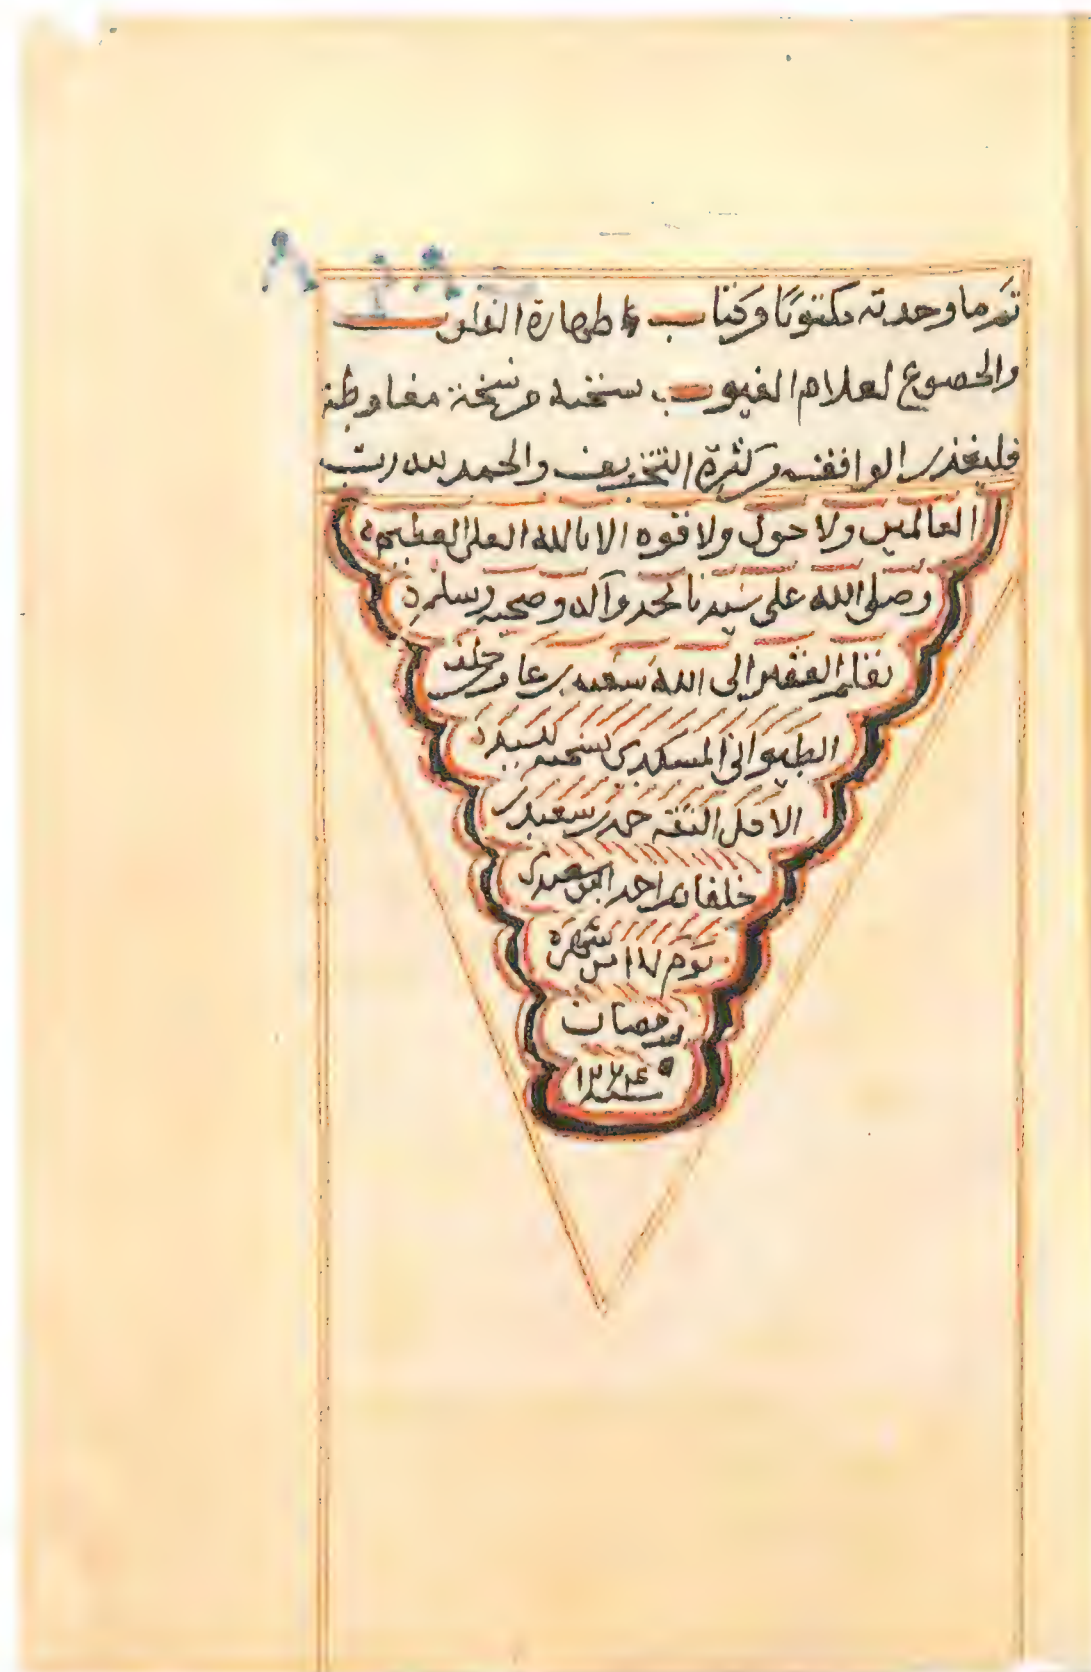 تم ما وجدته مكتوبا في كتاب طهارة القلوب
والخضوع لعلام الغيوب نسخته من نسخة
فليعذر الواقف من كثرة التحريف والحمد لله رب
العالمين ولا حول ولا قوه الا بالله العلي العظيم
وصلى الله على سيدنا محمد وآله وصحبه وسلم
بقلم الفقير الى الله سعيد بن خلف
الطيواني المسكدي
الثقه سعيد بن
خلفان بن احمد البوسعيدي
يوم من شهر
رمضان
سنة ١٢٢٤